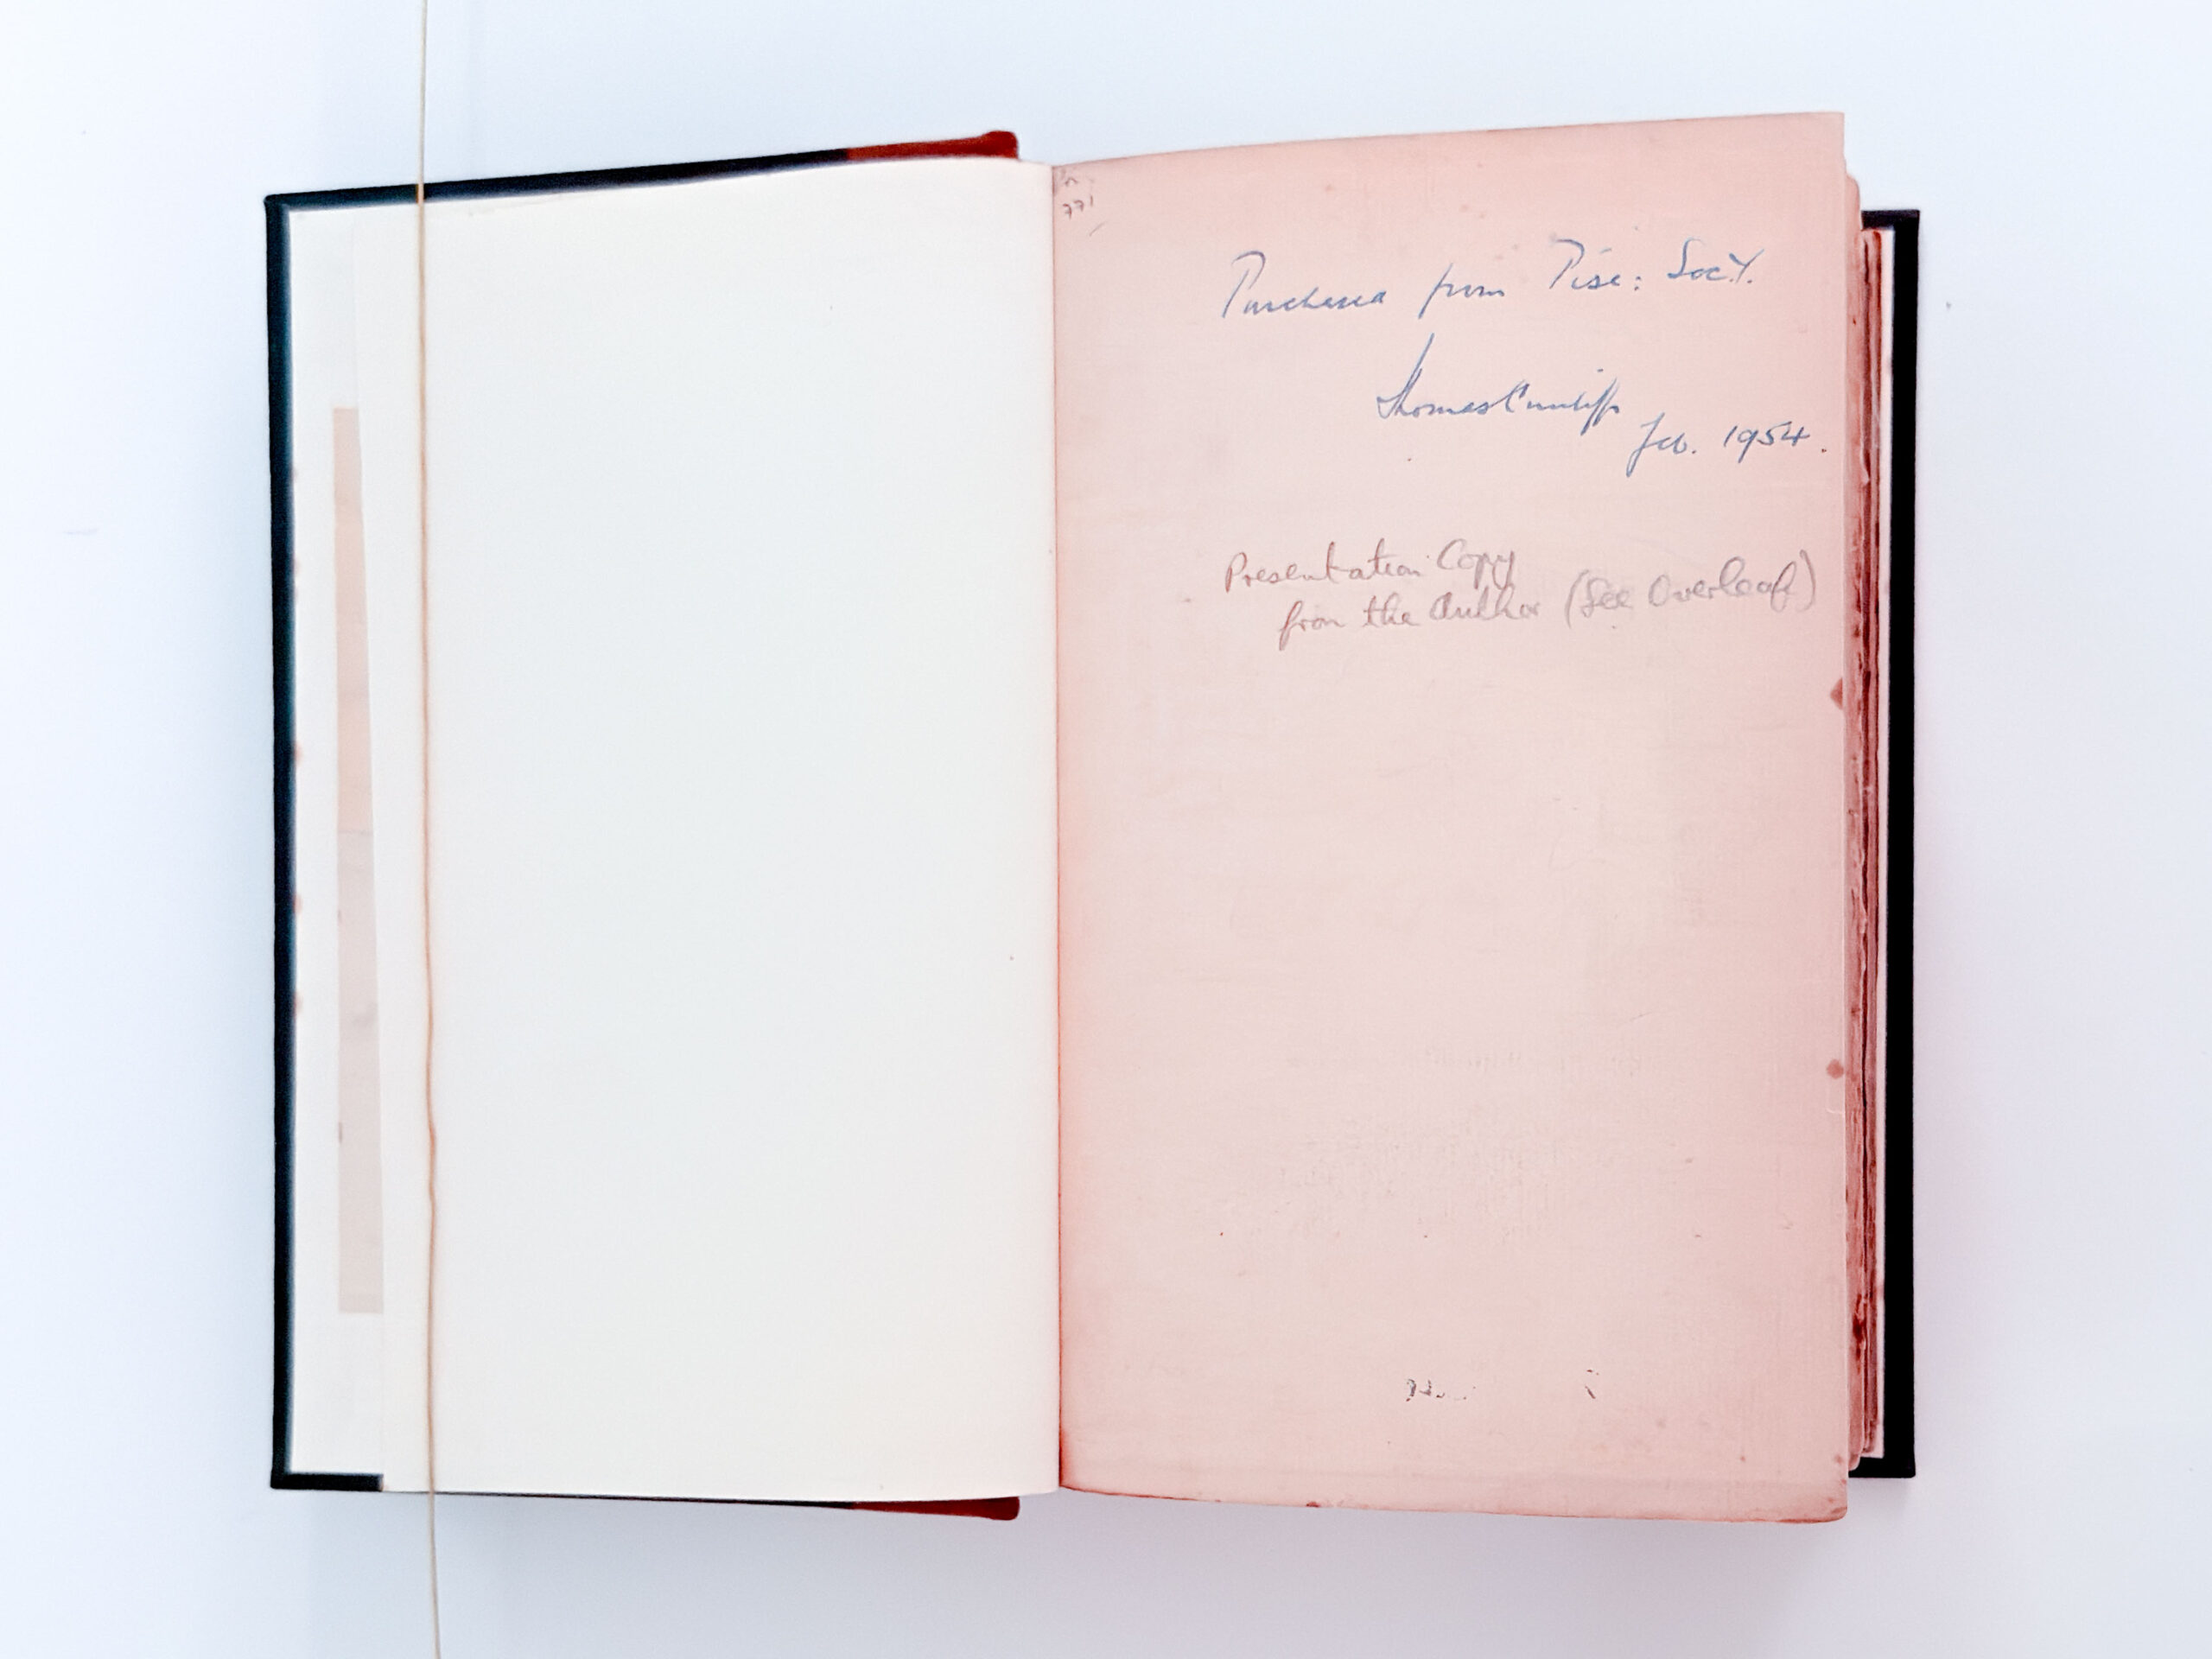 771
Purchased from Pisc: Socy.
Thomas Cunliffe
Feb. 1954.
Presentation Copy
from the Author (See Overleaf)